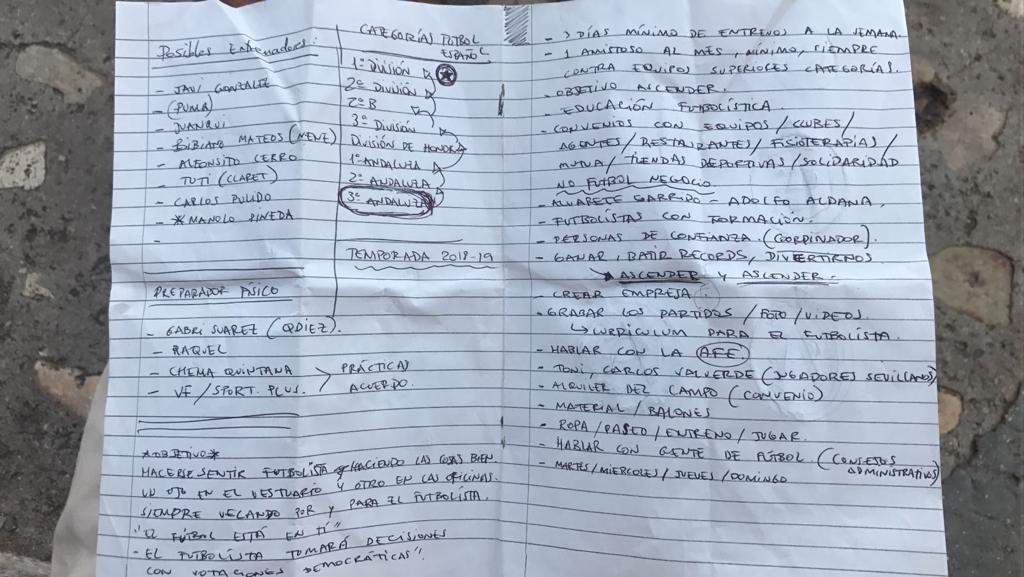 Posibles Entrenadores:
- JAVI GONZALEZ
- (PUMA)
- JUANQUI
- BIBIANO MATEOS (NEVE)
- ALFONSITO CERRO
- TUTI (CLARET)
- CARLOS PULIDO
- *MANOLO PINEDA
-
PREPARADOR FÍSICO
- GABRI SUAREZ (QDIEZ).
- RAQUEL
- CHEMA QUINTANA
- VF / SPORT. PLUS.
PRÁCTICAS
ACUERDO.
*OBJETIVO*
HACERSE SENTIR FUTBOLISTA HACIENDO LAS COSAS BIEN.
UN OJO EN EL VESTUARIO Y OTRO EN LAS OFICINAS.
SIEMPRE VELANDO POR Y PARA EL FUTBOLISTA.
"EL FÚTBOL ESTÁ EN TÍ"
- EL FUTBOLISTA TOMARÁ DECISIONES
CON VOTACIONES DEMOCRÁTICAS".
CATEGORÍAS FUTBOL
ESPAÑOL
1ª DIVISIÓN
2ª DIVISIÓN
2ª B
3ª DIVISIÓN
DIVISIÓN DE HONOR
1ª ANDALUZA
2ª ANDALUZA
3ª ANDALUZA
TEMPORADA 2018-19
- 3 DÍAS MÍNIMO DE ENTRENOS A LA SEMANA.
- 1 AMISTOSO AL MES, MÍNIMO, SIEMPRE
CONTRA EQUIPOS SUPERIORES CATEGORÍAS.
- OBJETIVO ASCENDER.
- EDUCACIÓN FUTBOLÍSTICA.
- CONVENIOS CON EQUIPOS / CLUBES /
AGENTES / RESTAURANTES / FISIOTERAPIAS /
MUTUA / TIENDAS DEPORTIVAS / SOLIDARIDAD
NO FUTBOL NEGOCIO
- ALVARETE GARRIDO - ADOLFO ALDANA.
- FUTBOLÍSTAS CON FORMACIÓN.
- PERSONAS DE CONFIANZA. (COORDINADOR).
- GANAR, BATIR RECORDS, DIVERTIRNOS
ASCENDER Y ASCENDER.
- CREAR EMPRESA.
- GRABAR LOS PARTIDOS / FOTO / VIDEOS.
CURRICULUM PARA EL FUTBOLISTA.
- HABLAR CON LA AFE
- TONI, CARLOS VALVERDE (JUGADORES SEVILLANOS)
- ALQUILER DEL CAMPO (CONVENIO)
- MATERIAL / BALONES
- ROPA / PASEO / ENTRENO / JUGAR.
- HABLAR CON GENTE DE FUTBOL (CONSEJOS
ADMINISTRATIVOS)
- MARTES / MIERCOLES / JUEVES / DOMINGO